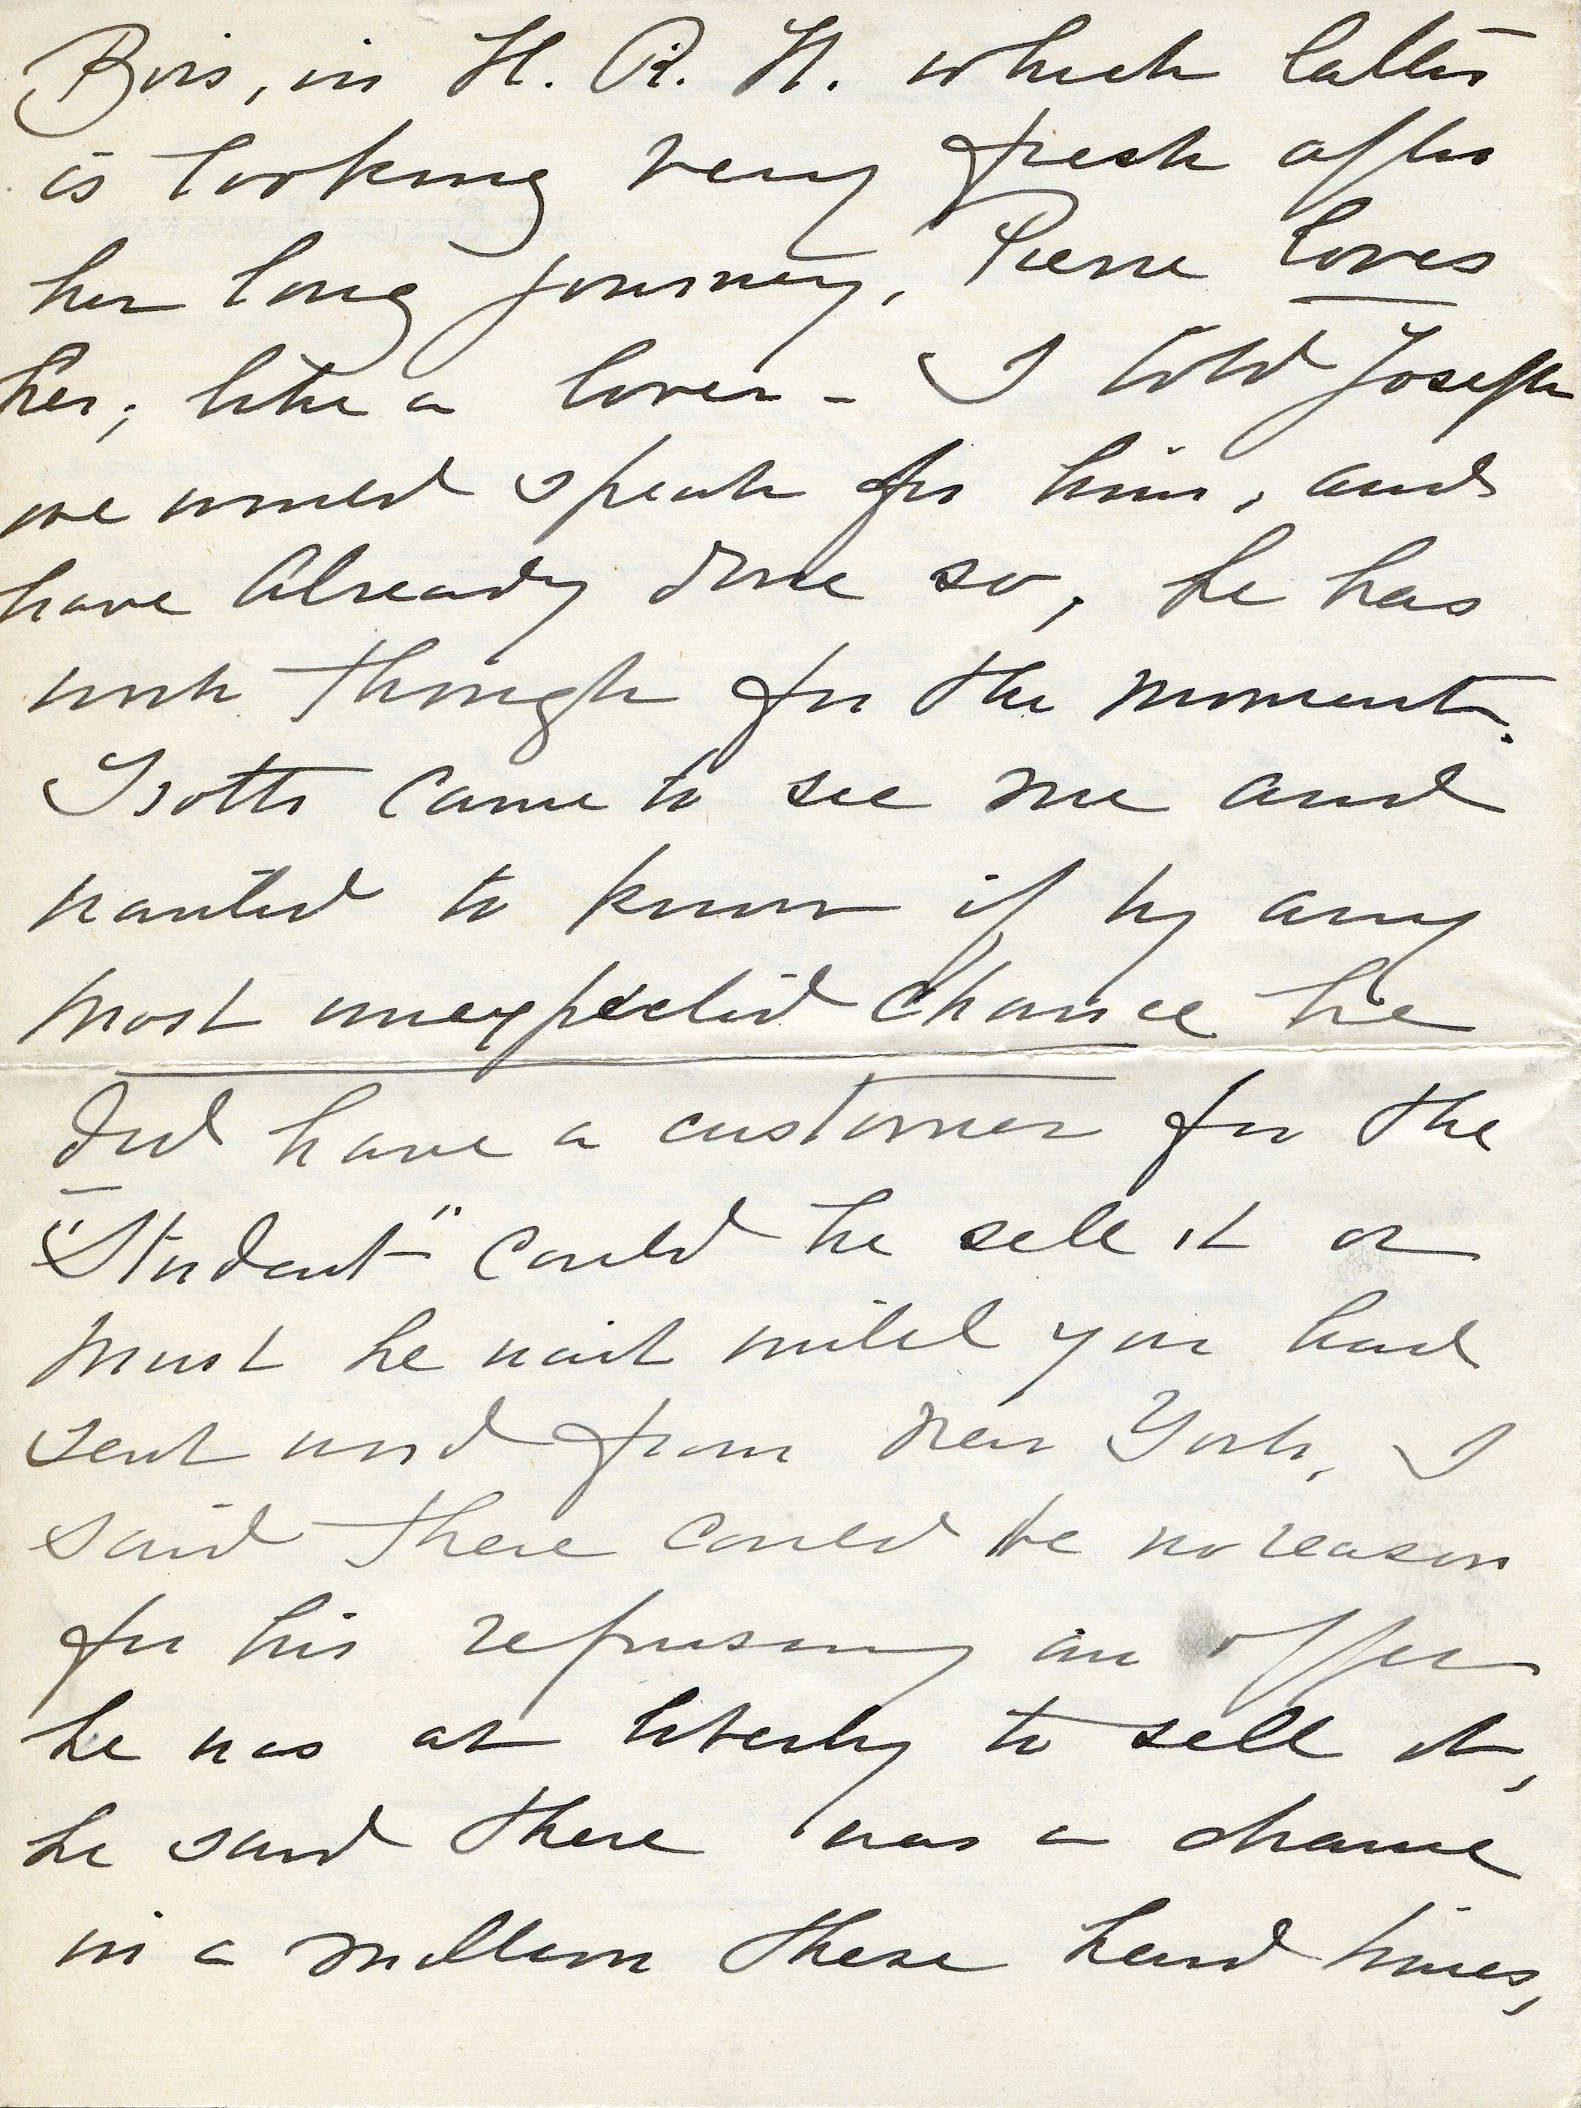 Bois, in H. R. H. which latter
is looking very fresh after
her long journey, Pierre loves
her, like a lover - I told Joseph
we would speak for him, and
have already done so, he has
work though for the moment.
came to see me and
wanted to know if by any
most unexpected chance he
did have a customer for the
"Student" could he sell it or
must he wait until you had
sent word from New York, I
said there could be no reason
for his refusing an offer
he was at liberty to sell it,
he said there was a chance
in a million these hard times,